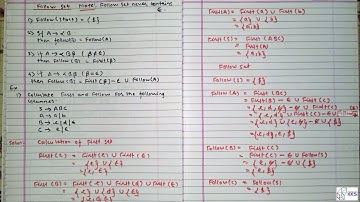 Follow Set Note: Follow Set never contains ε.
1) Follow (Start) = {$}
2) If A → αB
then follow(B) = Follow(A)
3) If A → αBβ (β≠ε)
then Follow (B) = First(β)
4) If A → αBβ (β=ε)
then Follow (B) = First(β) - ε ∪ Follow(A)
Ex
1) Calculate First and Follow for the following
Grammar
S → ABC
A → a|b
B → c|d|ε
C → e|ε
Soln: Calculation of First Set
First (C) = First (e) ∪ First (ε)
= {e} ∪ {ε}
= {e, ε}
First (B) = First (c) ∪ First (d) ∪ First (ε)
= {c} ∪ {d} ∪ {ε}
= {c, d, ε}
First(A) = First (a) ∪ First (b)
= {a} ∪ {b}
= {a, b}
First(S) = First(ABC)
= First(A)
= {a, b}
Follow Set
Follow (S) = {$}
Follow (A) = First (BC)
= First (B) - ε ∪ First (C)
= {c, d, ε} - ε ∪ First (C)
= {c, d} ∪ First(C) - ε ∪ Follow(S)
= {c, d} ∪ {e, ε} - ε ∪ {$}
= {c, d, e, $}
Follow (B) = First (C)
= First (C) - ε ∪ Follow(S)
= {e, ε} - ε ∪ {$}
= {e, $}
Follow (C) = Follow (S)
= {$}